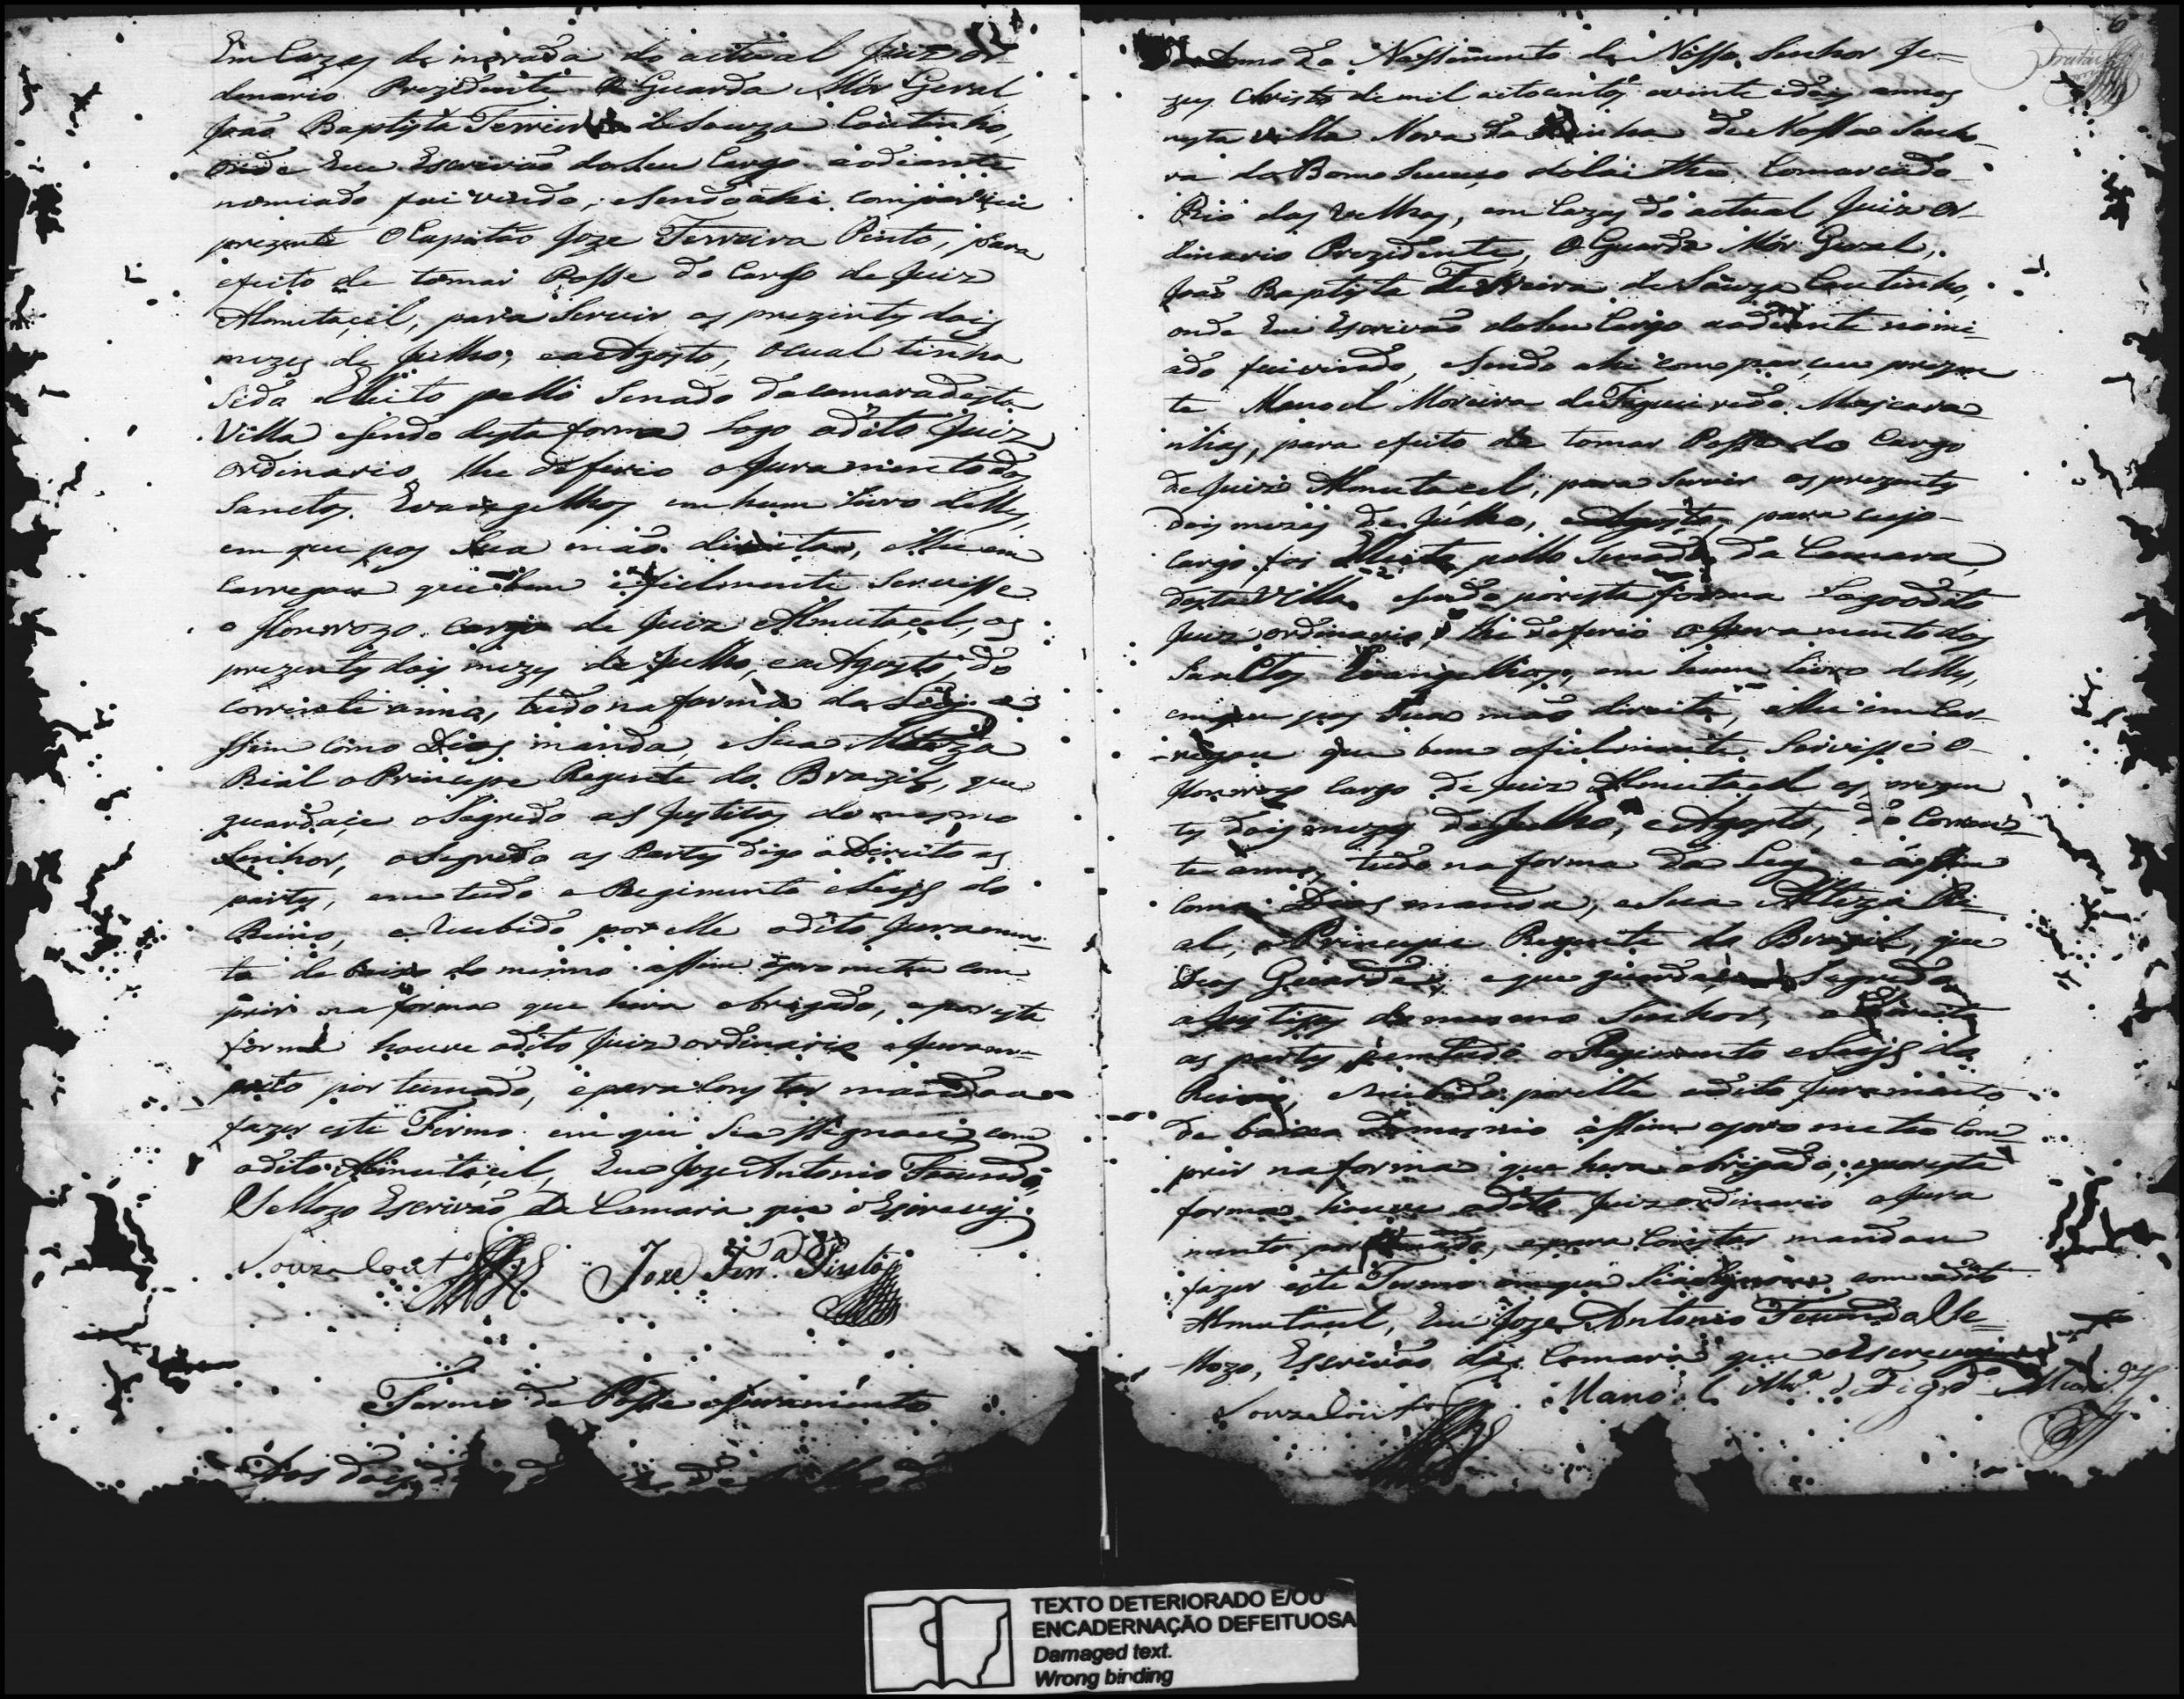 Em Cazas de morada do actual Juiz Or
denario Prezidente O Guarda Mór Geral
João Baptista Ferreira de Souza Coutinho,
onde Eu Escrivão do seu Cargo aodiante
nomiado fui vindo, e sendo ahi compareceu
prezente O Capitão Joze Ferreira Pinto, para
efeito de tomar Posse do Cargo de Juiz
Almotacel, para servir os prezentes dois
mezes de Julho, e Agosto, o cual tinha
sido Eleito pello Senado da Camara desta
Villa e sendo desta forma logo o dito Juiz
Ordinario lhe deferio o Juramento dos
Sanctos Evangelhos em hum Livro delles,
em que pos sua mão direita, e lhe en
carregou que bem e fielmente servisse
o Honrozo cargo de Juiz Almutacel, os
prezentes dois mezes de Julho, e Agosto, do
corrente anno, tudo na forma da Ley e a
ssim como Deos manda, e Sua Alteza
Rial o Principe Regente do Brazil, que
guardaçe o Segredo as Justiças do mesmo
Senhor, o Segredo as Partes digo o Direito as
partes, em tudo o Regimento e Leys do
Reino, e recebido por elle o dito Juramen-
to debaixo do mesmo assim o prometeu com
prir na forma que hera obrigado, e por esta
forma houve o dito Juiz ordinario o Juram-
ento por tumado, e para constar mandou
fazer este Termo em que se assignou com
o dito Almutacel, Eu Joze Antonio Fecundo
Vellozo Escrivão da Camara que o Escrevy.
Souza Cout.º Joze Ferr.ª Pinto
Termo de Posse e Juramento
Aos dois de
6
Anno do Nassimento de Nosso Senhor Je-
zus Christo de mil oitocentos e vinte e dois annos
nesta Villa Nova da Rainha de Nossa Senho
ra do Bom Sucuço do Caithe Comarca do
Rio das Velhas, em Cazas do actual Juiz Or-
dinario Prezidente, O Guarda Mór Geral,
João Baptista Ferreira de Souza Coutinho,
onde Eu Escrivão do seu Cargo aodiante nomi
ado fui vindo, e sendo ahi compareceu prezen
te Manoel Moreira de Figueiredo Mascara
nhas, para efeito de tomar Posse do Cargo
de Juiz Almutacel, para servir os prezentes
dois mezes de Julho, e Agosto, para cujo
cargo foi Eleito pello Senado da Camara
desta Villa, e sendo por esta forma Logo o dito
Juiz ordinario, lhe deferio o Juramento dos
Sanctos Evangelhos, em hum livro delles,
em que pos sua mão direita, e lhe encar-
regou que bem e fielmente servisse o
Honrozo cargo de Juiz Almutacel os prezen
tes dois mezes de Julho, e Agosto, do Corren
te anno, tudo na forma da Ley e assim
como Deos manda, e Sua Alteza Ri-
al, o Principe Regente do Brazil, que
Deos Guarde, e que guardaçe Segredo
a Justiças do mesmo Senhor, o Direito
as partes, em tudo o Regimento e Leys do
Reino, e recebido por elle o dito Juramento
de baixo do mesmo assim o prometeo com
prir na forma que hera obrigado, e por esta
forma houve o dito Juiz ordinario o Jura
mento por tumado, e para constar mandou
fazer este Termo em que se assignou com o dito
Almutacel, Eu Joze Antonio Fecundo Ve-
llozo, Escrivão da Camara que o Escrevy
Souza Cout.º Manoel Mor.ª d Figrd.º
TEXTO DETERIORADO E/OU
ENCADERNAÇÃO DEFEITUOSA
Damaged text.
Wrong binding